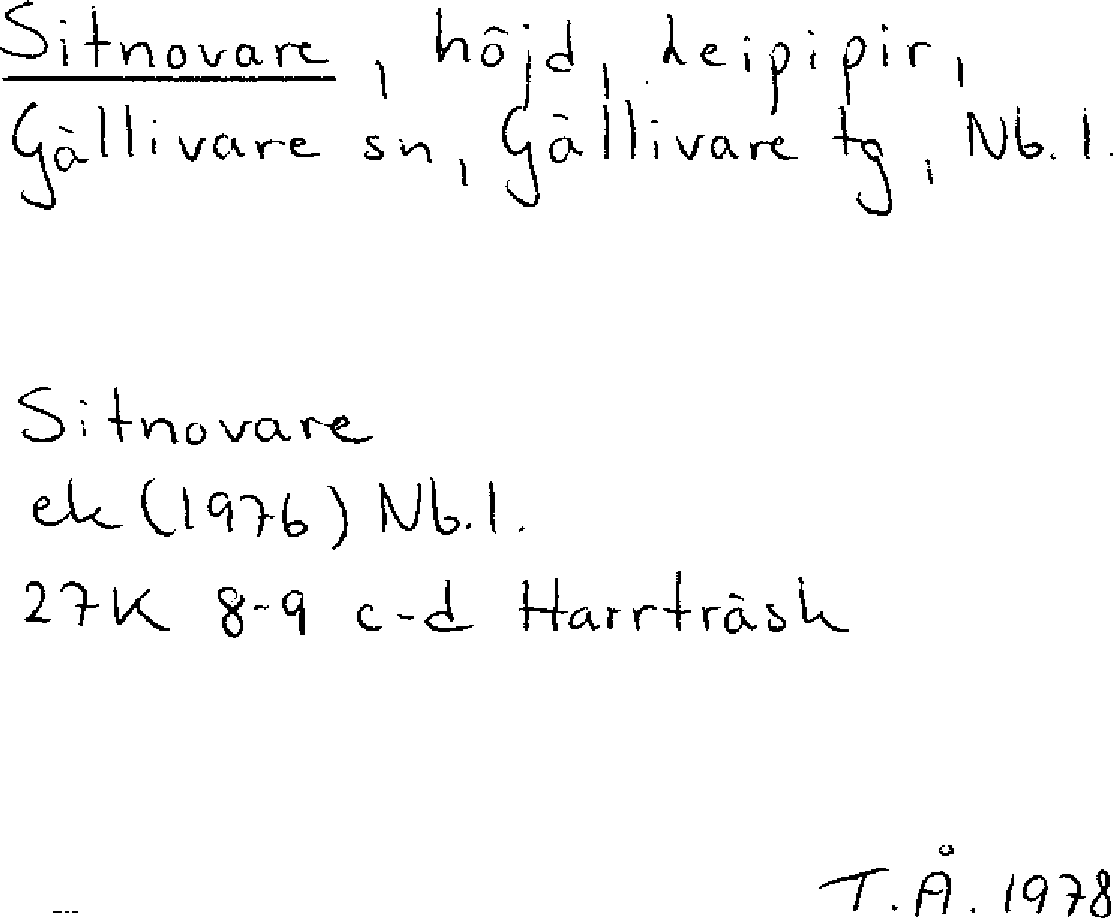 Sitnovare, höjd, Leipipir,
Gällivare sn, Gällivare tg, Nb. l.
Sitnovare
ek (1976) Nb.l.
27K 8-9 c-d Harrträsk
T.Å. 1978